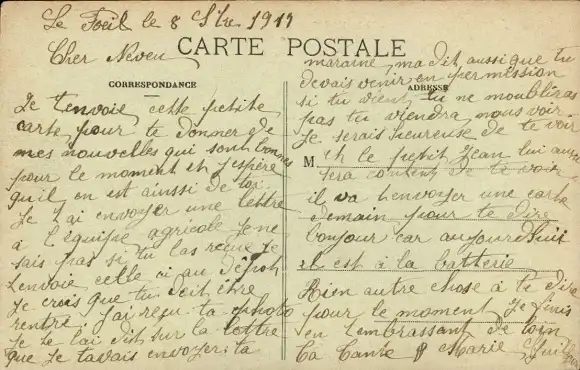 Le Foeil le 8 Sbre 1911
Cher Neveu
CARTE POSTALE
CORRESPONDANCE
Je t'envoie cette petite
carte pour te donner de
mes nouvelles qui sont bonnes
pour le moment et j'espère
qu'il en est ainsi de toi.
Je t'ai envoyer une lettre
à l'équipe agricole je ne
sais pas si tu las reçue je
t'envoie celle ci au dépôt
je crois que tu doit être
rentré j'ai reçu ta photo
je te l'ai dit sur la lettre
que je t'avais envoyer ta
ADRESSE
maraine ma dit aussi que tu
devais venir en permission
si tu vient tu ne moublieras
pas tu viendra nous voir
je serais heureuse de te voir
M
et le petit Jean lui aussi
sera content de te voir
il va t'envoyer une carte
demain pour te dire
bonjour car aujourd'huit
il est à la batterie
Rien autre chose à te dire
pour le moment je finis
en t'embrassant de loin
Ta Tante Marie